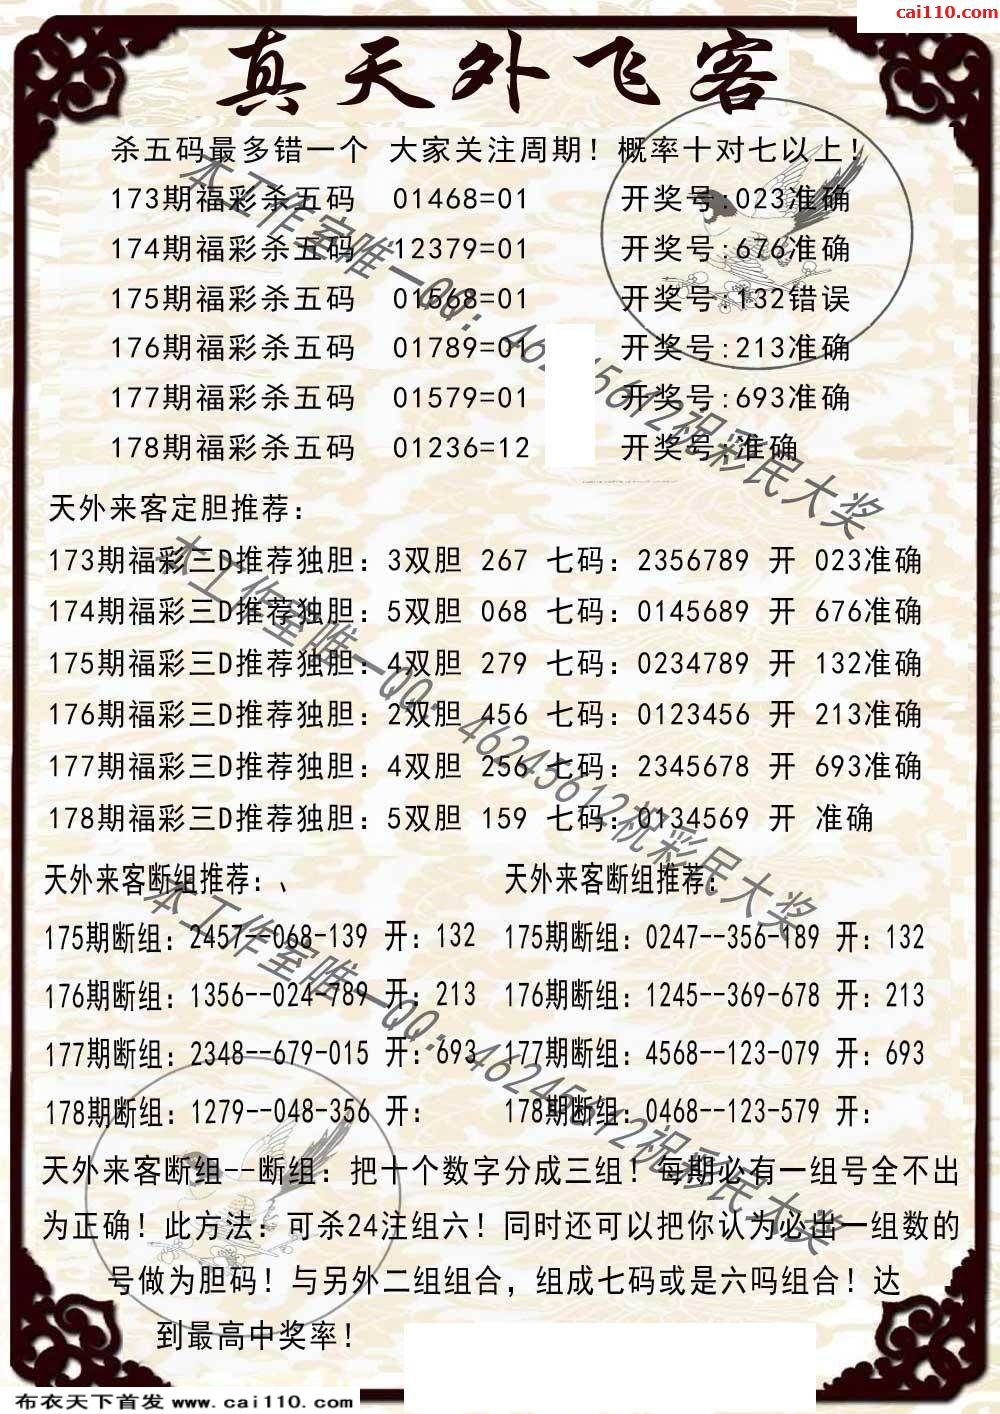 cai110.com
真天外飞客
杀五码最多错一个 大家关注周期！概率十对七以上！
173期福彩杀五码 01468=01 开奖号:023准确
174期福彩杀五码 12379=01 开奖号:676准确
175期福彩杀五码 01568=01 开奖号:132错误
176期福彩杀五码 01789=01 开奖号:213准确
177期福彩杀五码 01579=01 开奖号:693准确
178期福彩杀五码 01236=12 开奖号:准确
天外来客定胆推荐：
173期福彩三D推荐独胆：3双胆 267 七码：2356789 开 023准确
174期福彩三D推荐独胆：5双胆 068 七码：0145689 开 676准确
175期福彩三D推荐独胆：4双胆 279 七码：0234789 开 132准确
176期福彩三D推荐独胆：2双胆 456 七码：0123456 开 213准确
177期福彩三D推荐独胆：4双胆 256 七码：2345678 开 693准确
178期福彩三D推荐独胆：5双胆 159 七码：0134569 开 准确
天外来客断组推荐：、 天外来客断组推荐：
175期断组：2457--068-139 开：132 175期断组：0247--356-189 开：132
176期断组：1356--024-789 开：213 176期断组：1245--369-678 开：213
177期断组：2348--679-015 开：693 177期断组：4568--123-079 开：693
178期断组：1279--048-356 开： 178期断组：0468--123-579 开：
天外来客断组--断组：把十个数字分成三组！每期必有一组号全不出
为正确！此方法：可杀24注组六！同时还可以把你认为必出一组数的
号做为胆码！与另外二组组合，组成七码或是六吗组合！达
到最高中奖率！
本工作室唯一QQ：46245612祝彩民大奖
本工作室唯一QQ：46245612祝彩民大奖
本工作室唯一QQ：46245612祝彩民大奖
布衣天下首发 www.cai110.com